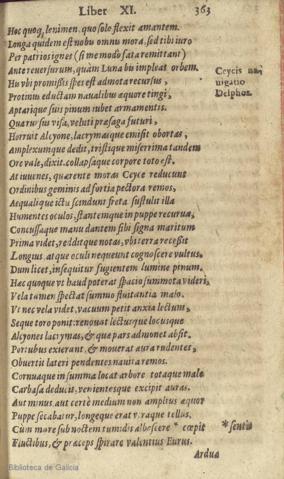 Liber XI. 363
Hoc quoq, lenimen, quo solo flexit amantem.
Longa quidem est nobis omnis mora, sed tibi iuro
Per patrios ignes (si me modò fata remittant)
Ante reuersurum, quàm Luna bis impleat orbem.
His vbi promissis spes est admota recursus,
Protinus eductam naualibus æquore tingi,
Aptarique suis pinum iubet armamentis.
Qua rursus visa, veluti præsaga futuri,
Horruit Alcyone, lacrymasque emisit obortas,
Amplexumque dedit, tristique miserrima tandem
Ore vale, dixit, collapsaque corpore toto est.
At iuuenes, quærente moras Ceyce reducunt
Ordinibus geminis ad fortia pectora remos,
Aequalique ictu scindunt freta. sustulit illa
Humentes oculos, stantemque in puppe recurua,
Concussaque manu dantem sibi signa maritum
Prima videt, redditque notas, vbi terra recessit
Longius, atque oculi nequeunt cognoscere vultus,
Dum licet, insequitur fugientem lumine pinum.
Hæc quoque vt haud poterat spacio summota videri,
Vela tamen spectat summo fluitantia malo.
Vt nec vela videt, vacuum petit anxia lectum,
Seque toro ponit: renouat lectusque locusque
Alcyones lacrymas, & quæ pars admonet absit.
Portubus exierant, & mouerat aura rudentes,
Obuertit lateri pendentes nauita remos.
Cornuaque in summa locat arbore totaque malo
Carbasa deducit, venientesque excipit auras.
Aut minus, aut certè medium non amplius æquor
Puppe secabatur, longeque erat vtraque tellus,
Cùm mare sub noctem tumidis albescere * cœpit
Fluctibus, & præceps spirare valentius Eurus.
Ardua
Ceycis na-
uigatio
Delphos.
* sentit
Biblioteca de Galicia